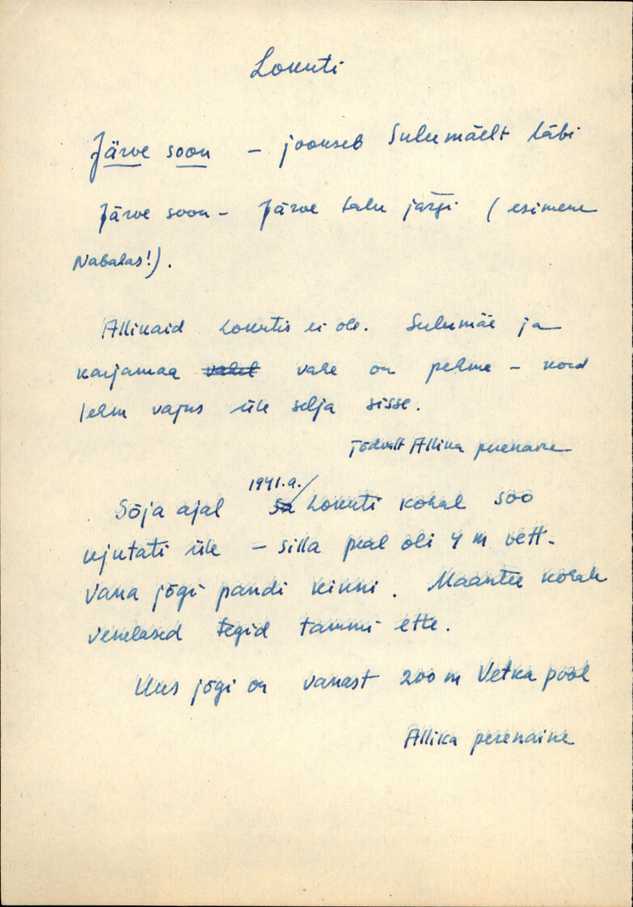 Lokuti
Järve soon - jookseb Sulumäelt läbi
Järve soon - Järve talu järgi (esimene
Nabalas!).
Allikaid Lokutis ei ole. Sulumäe ja
karjamaa vahel vahe on pehme - kord
lehm vajus üle selja sisse.
Allika perenaine
1941.a.
Sõja ajal sa Lokuti kohal soo
ujutati üle - silla peal oli 4 m vett.
Vana jõgi pandi kinni. Maantee kohale
venelased tegid tammi ette.
Uus jõgi on vanast 200 m Vetka pool
Allika perenaine